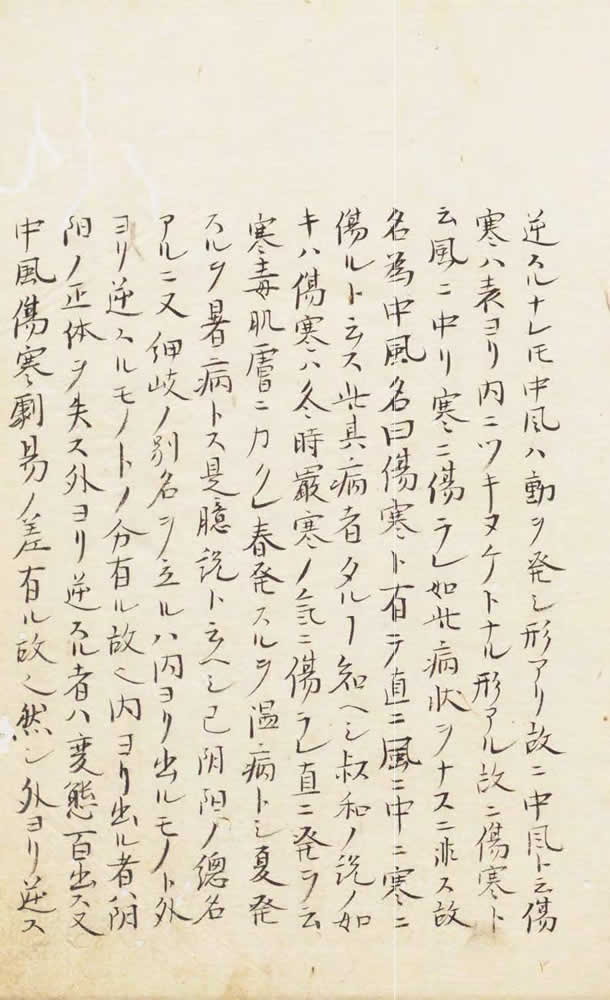 逆スルナレ𪜈中風ハ動ヲ発シ形アリ故ニ中風ト云傷
寒ハ表ヨリ内ニツキヌケトナル形アル故ニ傷寒ト
云風ニ中リ寒ニ傷ラレ如此病状ヲナスニ非ス故
名為中風名曰傷寒ト有テ直ニ風ニ中ニ寒ニ
傷ルト云ス此具病者タルヿ知ヘシ叔和ノ説ノ如
キハ傷寒ハ冬時嚴寒ノ氣ニ傷ラレ直ニ発ヲ云
寒毒肌膚ニカクレ春発スルヲ温病トシ夏発
スルヲ暑病トス是臆説ト云ヘシ已阴阳ノ總名
アルニ又岐ノ別名ヲ立ルハ内ヨリ出ルモノト外
ヨリ逆スルモノトノ分有ル故也内ヨリ出ル者ハ阴
阳ノ正体ヲ失ス外ヨリ逆スル者ハ変態百出ス又
中風傷寒劇易ノ差有ル故也然シ外ヨリ逆ス